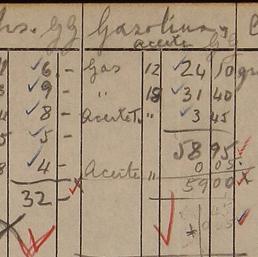 hs. GG Gasolina y
aceite
6.- Gas 12 24 50 gr
9- " 18 31 40
8- Aceite " 3 45
5-
58 95
8 4- Aceite " 0 05
32 - 59 00